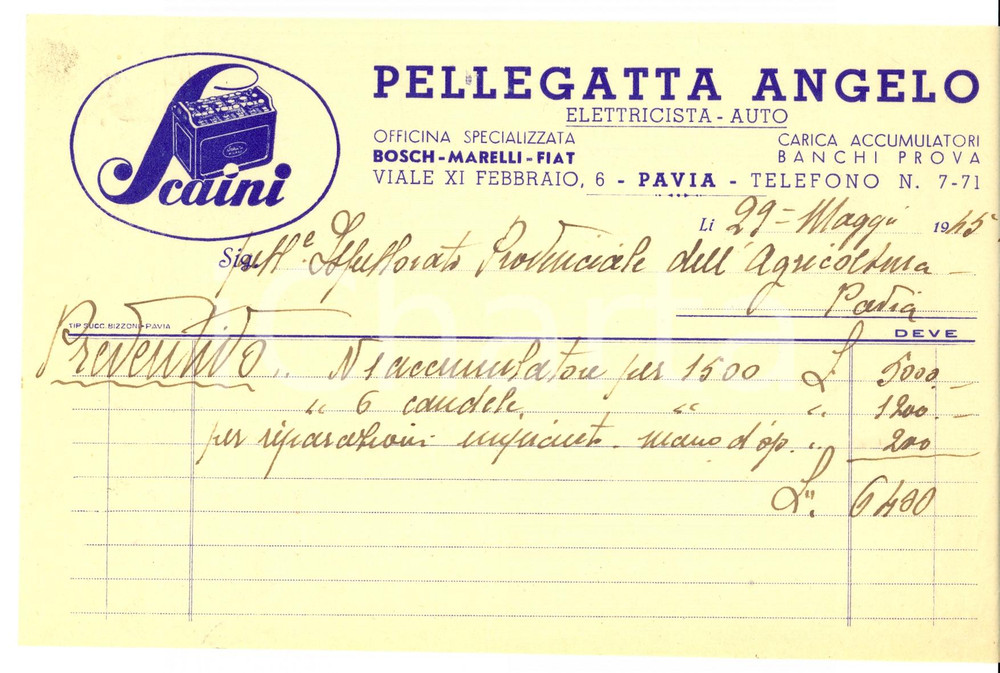 Scaini
PELLEGATTA ANGELO
ELETTRICISTA - AUTO
OFFICINA SPECIALIZZATA
BOSCH - MARELLI - FIAT
CARICA ACCUMULATORI
BANCHI PROVA
VIALE XI FEBBRAIO, 6 - PAVIA - TELEFONO N. 7-71
Li 29 = Maggio 1945
Sig. Ispettorato Provinciale dell'Agricoltura -
Pavia
TIP. SUCC. BIZZONI - PAVIA
DEVE
Preventivo " N 1 accumulatore per 1500 £ 5000 -
" 6 candele " " 1200 -
per riparazioni mano d'op. " 200
L. 6400